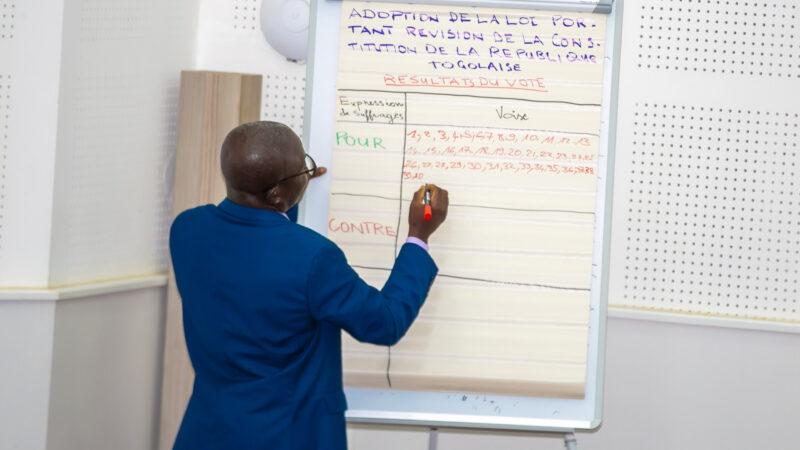 ADOPTION DE LA LOI POR-
TANT REVISION DE LA CONS-
TITUTION DE LA REPUBLIQUE
TOGOLAISE
RESULTATS DU VOTE
Expression de Suffrages
Voix
POUR
1, 2, 3, 4, 5, 6, 7, 8, 9, 10, 11, 12, 13
14, 15, 16, 17, 18, 19, 20, 21, 22, 23, 24, 25
26, 27, 28, 29, 30, 31, 32, 33, 34, 35, 36, 37, 38
CONTRE